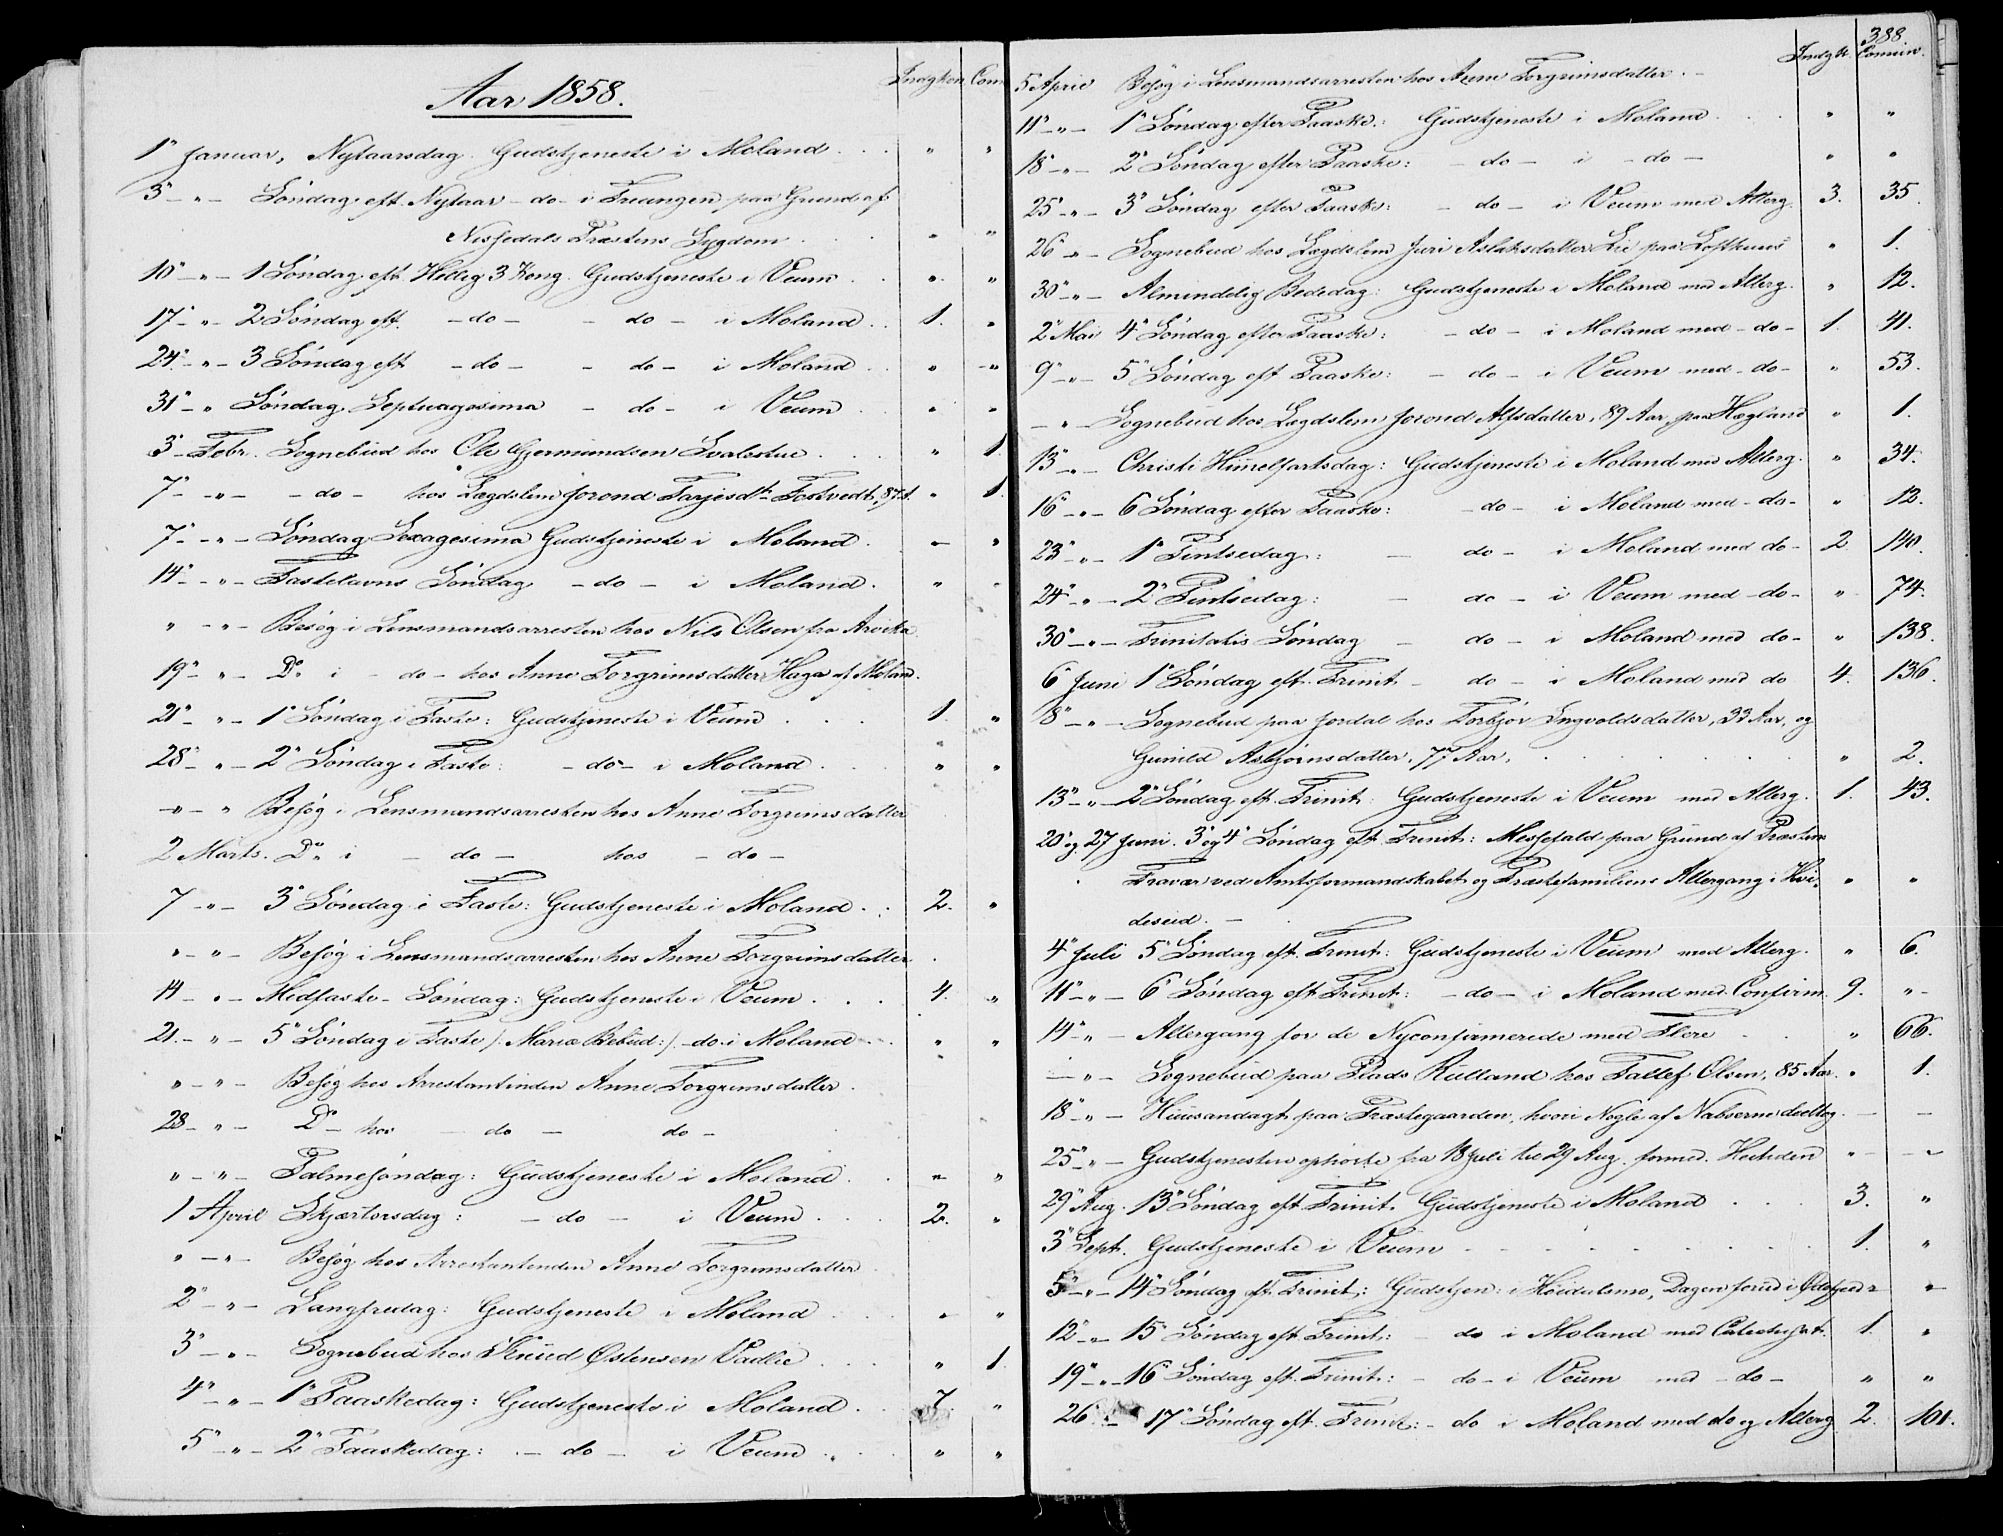 Aar 1858.
Indgken Com
1" Januar, Nytaarsdag. Gudstjeneste i Moland . . . " "
3" - " - Søndag eft. Nytaar - do - i Treungen paa Grund af
Nissedals Præstens Sygdom . . . " "
10" - " - 1 Søndag eft. Hellig 3 Kong. Gudstjeneste i Veum . . " "
17" - " - 2 Søndag eft. - do - - do - i Moland . . 1. "
24" - " - 3 Søndag eft - do - - do - i Moland . . " - " -
31" - " Søndag Septuagesima - do - i Veum . . " "
3" Febr. Sognebud hos Ole Gjermundsen Svalestue . . . " 1
7" - " - - do - hos Lægdslem Jorond Tarjesdtr Tostvedt, 87 A. " 1.
7" - " - Søndag Sexagesima Gudstjeneste i Moland . - "
14" - " - Fastelavns Søndag - do - i Moland . " -
" - " - Besøg i Lensmandsarresten hos Nils Olsen fra Arvika
19" - " - Do i - do - hos Anne Torgrimsdatter Haga af Moland.
21" - " - 1" Søndag i Faste: Gudstjeneste i Veum . . . 1. "
28" - " - 2" Søndag i Faste: - do - i Moland . . . " "
- " - " Besøg i Lensmandsarresten hos Anne Torgrimsdatter
2 Marts. Do i - do - hos - do -
7 - " - 3" Søndag i Faste: Gudstjeneste i Moland . . 2. "
" - " - Besøg i Lensmandsarresten hos Anne Torgrimsdatter .
14 - " - Midfaste-Søndag: Gudstjeneste i Veum . . . 4. "
21. - " - 5" Søndag i Faste /: Mariæ Bebud :/ - do. i Moland . . " "
" - " - Besøg hos Arrestantinden Anne Torgrimsdatter .
28 - " - Do hos do - do -
" - " - Palmesøndag: Gudstjeneste i Moland . . " "
1 April Skjærtorsdag: - do - i Veum . . . 2. "
" - " - Besøg hos Arrestantinden Anne Torgrimsdatter
2" - " - Langfredag: Gudstjeneste i Moland . . . " "
3" - " - Sognebud hos Knud Østensen Vadlie . . . " 1.
4" - " - 1" Paaskedag: Gudstjeneste i Moland . . 7. "
5" - " - 2" Paaskedag: - do - i Veum . . . " "
388
Indgk. Commun.
5 April Besøg i Lensmandsarresten hos Anne Torgrimsdatter. -
11" - " - 1" Søndag efter Paaske: Gudstjeneste i Moland . . . " "
18" - " - 2" Søndag efter Paaske: - do - i - do - " "
25" - " - 3" Søndag efter Paaske: - do - i Veum med Alterg. 3. 35.
26" - " - Sognebud hos Lægdslem Juri Aslaksdatter Lie paa Lofthuus " 1.
30" - " - Almindelig Bededag: Gudstjeneste i Moland med Alterg. " 12.
2" Mai 4" Søndag efter Paaske: - do - i Moland med - do - 1. 41.
9" - " - 5" Søndag eft Paaske: - do - i Veum med - do - " 53.
- " - Sognebud hos Lægdslem Jorond Alfsdatter, 89 Aar, paa Hægland " 1.
13" - " - Christi Himelfartsdag: Gudstjeneste i Moland med Alterg. " 34.
16" - " - 6 Søndag efter Paaske: - do - i Moland med - do - " 12.
23" - " - 1" Pintsedag: - do - i Moland med do - 2 140.
24" - " - 2" Pintsedag: - do - i Veum med - do - " 74.
30" - " - Trinitatis Søndag - do - i Moland med do - " 138.
6" Juni 1" Søndag eft. Trinit. - do - i Moland med do 4. 136.
8" - " - Sognebud paa Jordal hos Torbjør Ingvoldsdatter, 33 Aar, og
Gunild Asbjørnsdatter, 77 Aar, . . . . . . " 2.
13" - " - 2" Søndag eft. Trinit: Gudstjeneste i Veum med Alterg. 1. 43.
20" og 27 Juni. 3" og 4" Søndag eft. Trinit: Messefald paa Grund af Præstens
Fravær ved Amtsformandskabet og Præstefamiliens Altergang i Hvi- " "
deseid. -
4" Juli 5" Søndag eft. Trinit: Gudstjeneste i Veum med Alterg. " 6.
11" - " - 6" Søndag eft. Trinit: - do - i Moland med Confirm. 9. " -
14" - " - Altergang for de Nyconfirmerede med Flere . . " 66.
- " - Sognebud paa Plads Rulland hos Tallef Olsen, 85 Aar. " 1.
18" - " - Huusandagt paa Præstegaarden, hvori Nogle af Naboerne deeltog. - -
25" - " - Gudstjenesten ophørte fra 18 Juli til 29 Aug. formed. Heden " - - " -
29" Aug. 13" Søndag eft. Trinit. Gudstjeneste i Moland . . . 3. "
3" Sept. Gudstjeneste i Veum . . . . . . . 1. "
5" - " - 14" Søndag eft. Trinit.: Gudstjen: i Høidalsmo, Dagen forud i " -
12" - " - 15" Søndag eft. Trinit: - do i Moland med Catechisat. 1. "
19" - " - 16" Søndag eft. Trinit: - do - i Veum med - do - " "
26" - " - 17" Søndag eft. Trinit: - do i Moland med do og Alterg 2. 101.